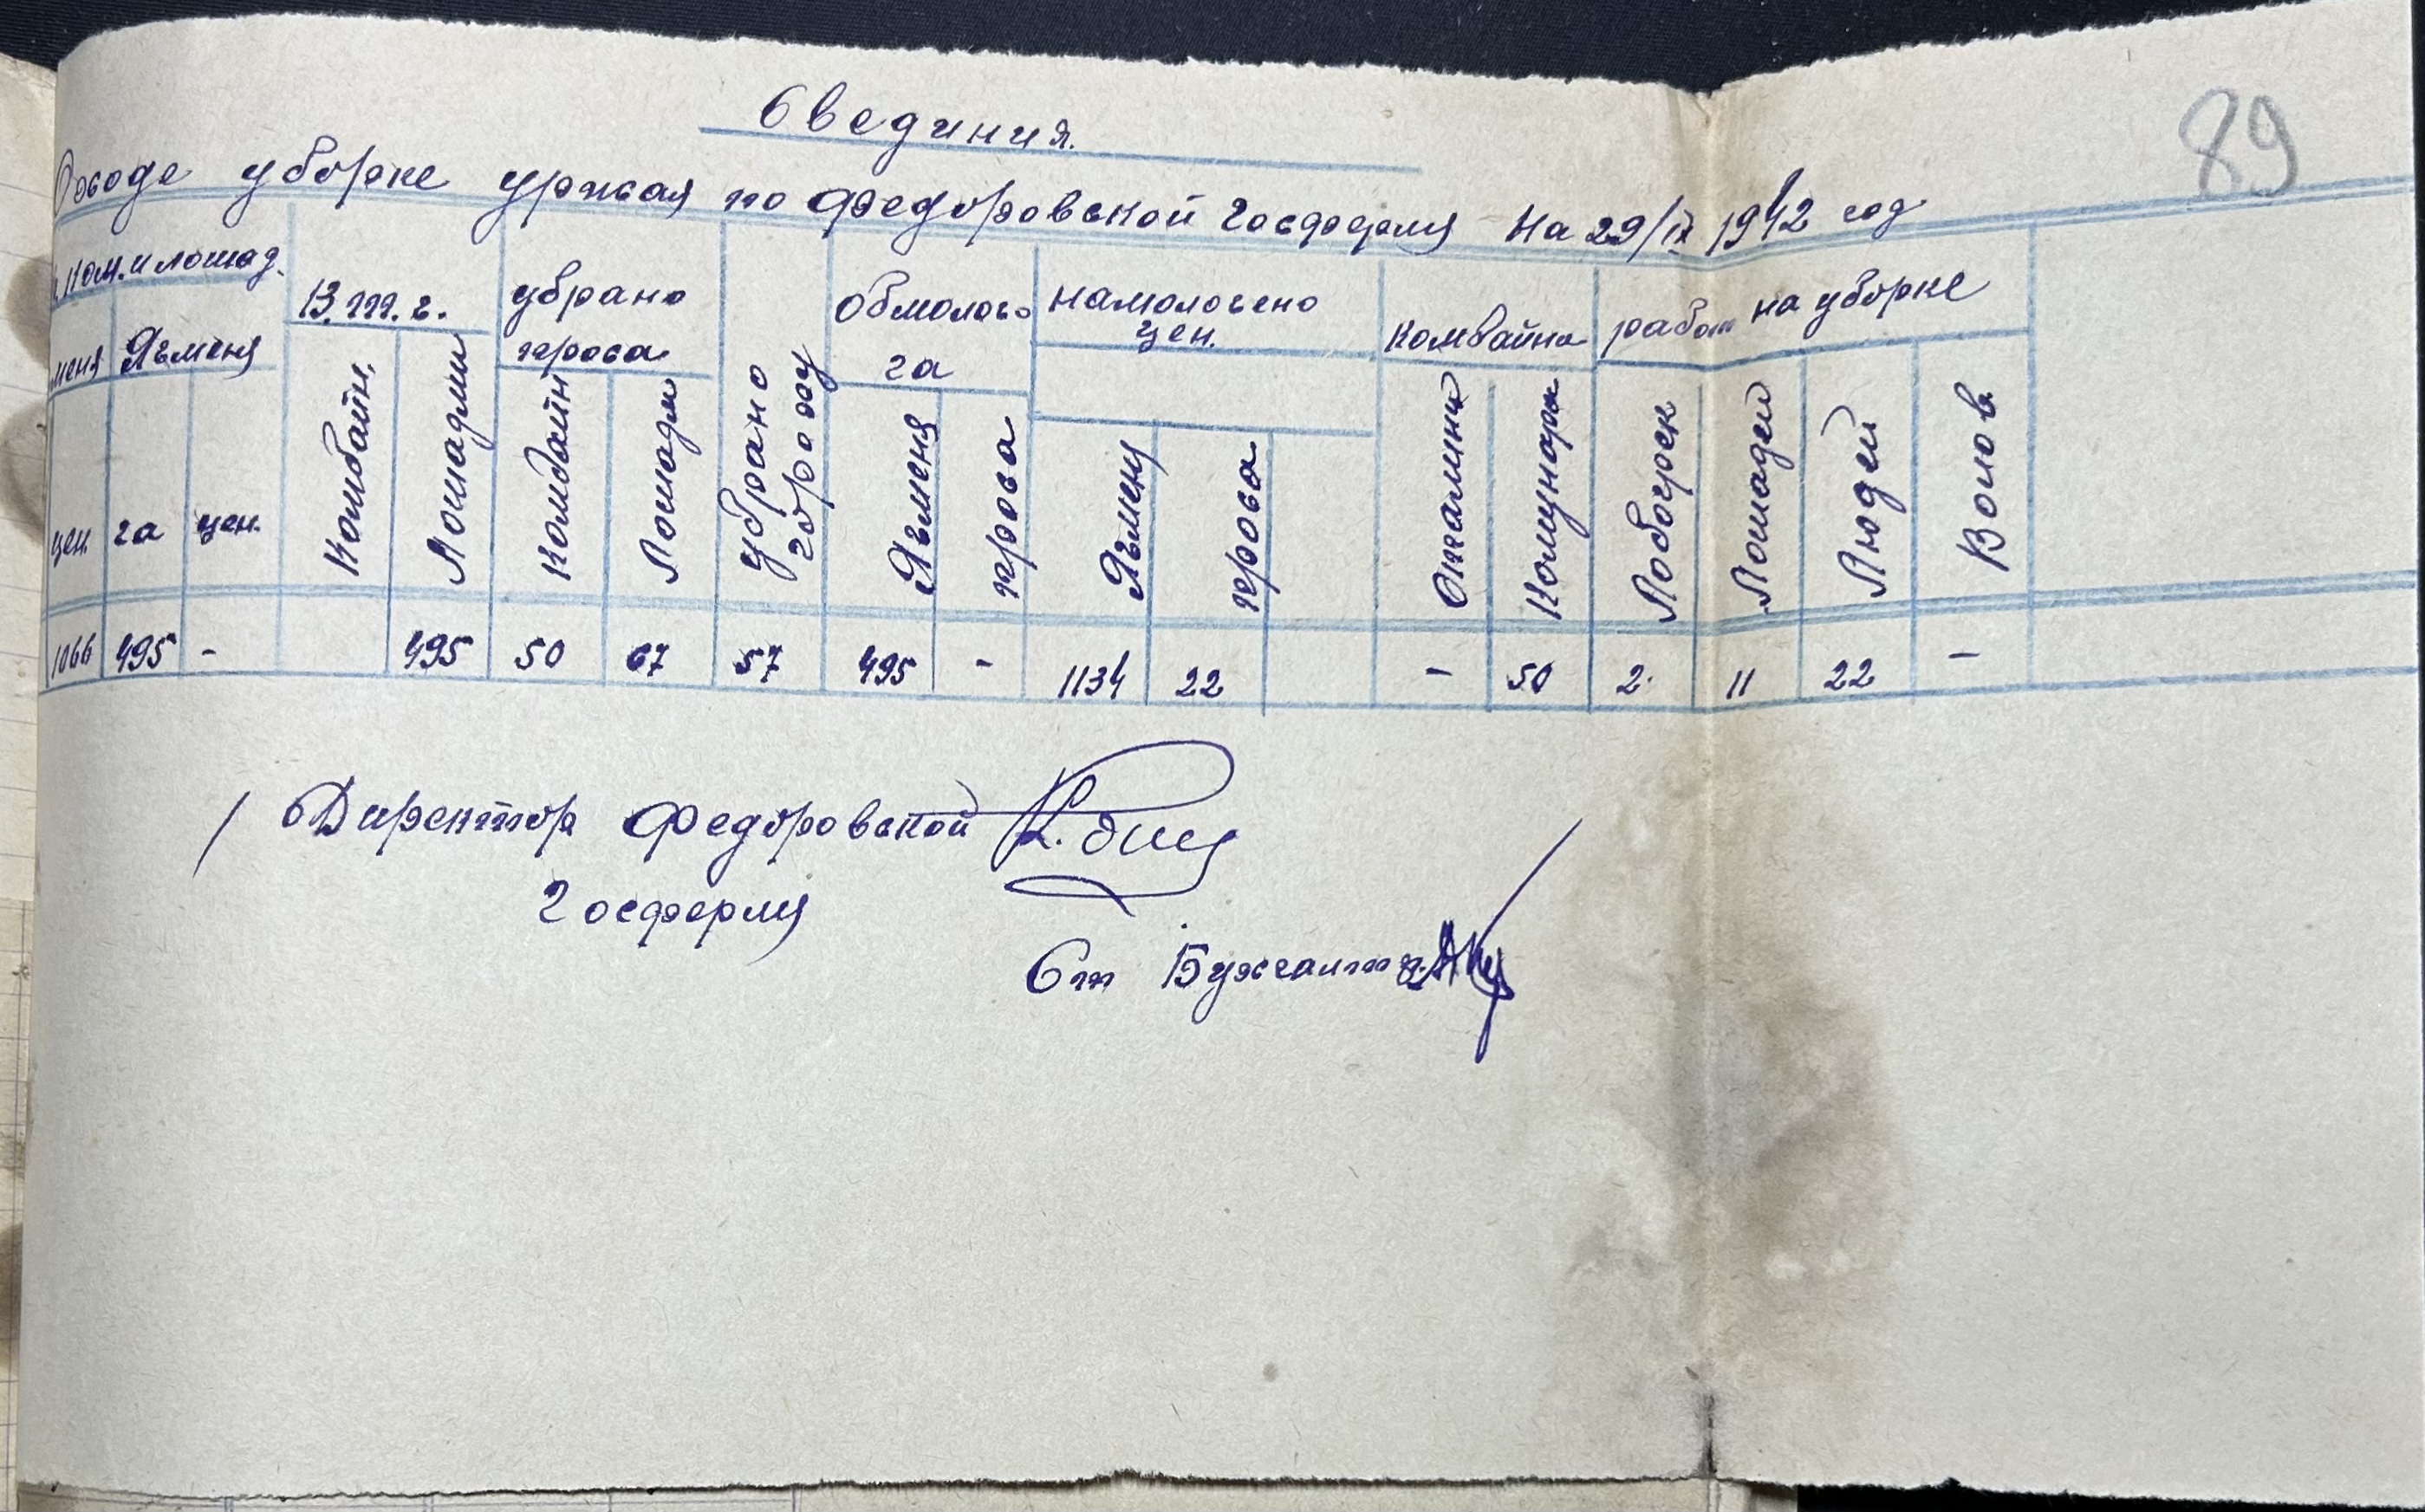 89
Свединия.
О ходе уборке уржая по Федоровской Госфермы на 29/IX 1942 год
ком. и лошад.
В т.ч. убрано проса Обмолоч. га намолочено цен. комбайна работ на уборке
меня Ячменя
цен га цен. Комбайн. Лошадми комбайн Лошадми убрано гороху Ячменя проса Ячменя проса Сталинец Комунара Лобогрек Лошадей Людей Волов
1066 495 - 495 50 67 57 495 - 1134 22 - 50 2. 11 22 -
Директор Федоровской
Госфермы
Ст Бухгалтер